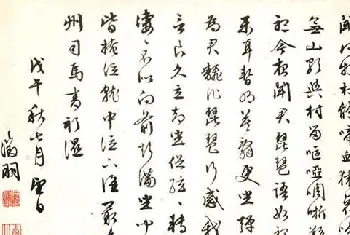 聞何物杜鵑啼血猿哀
無山歌與村笛嘔啞嘲哳難
聞君琵琶語如
樂耳暫明莫辭更坐彈
為君翻作琵琶行感我
言良久立却坐促絃絃轉
淒不似向前聲滿坐重
皆掩泣就中泣下誰最
州司馬青衫濕
戊午秋七月望日